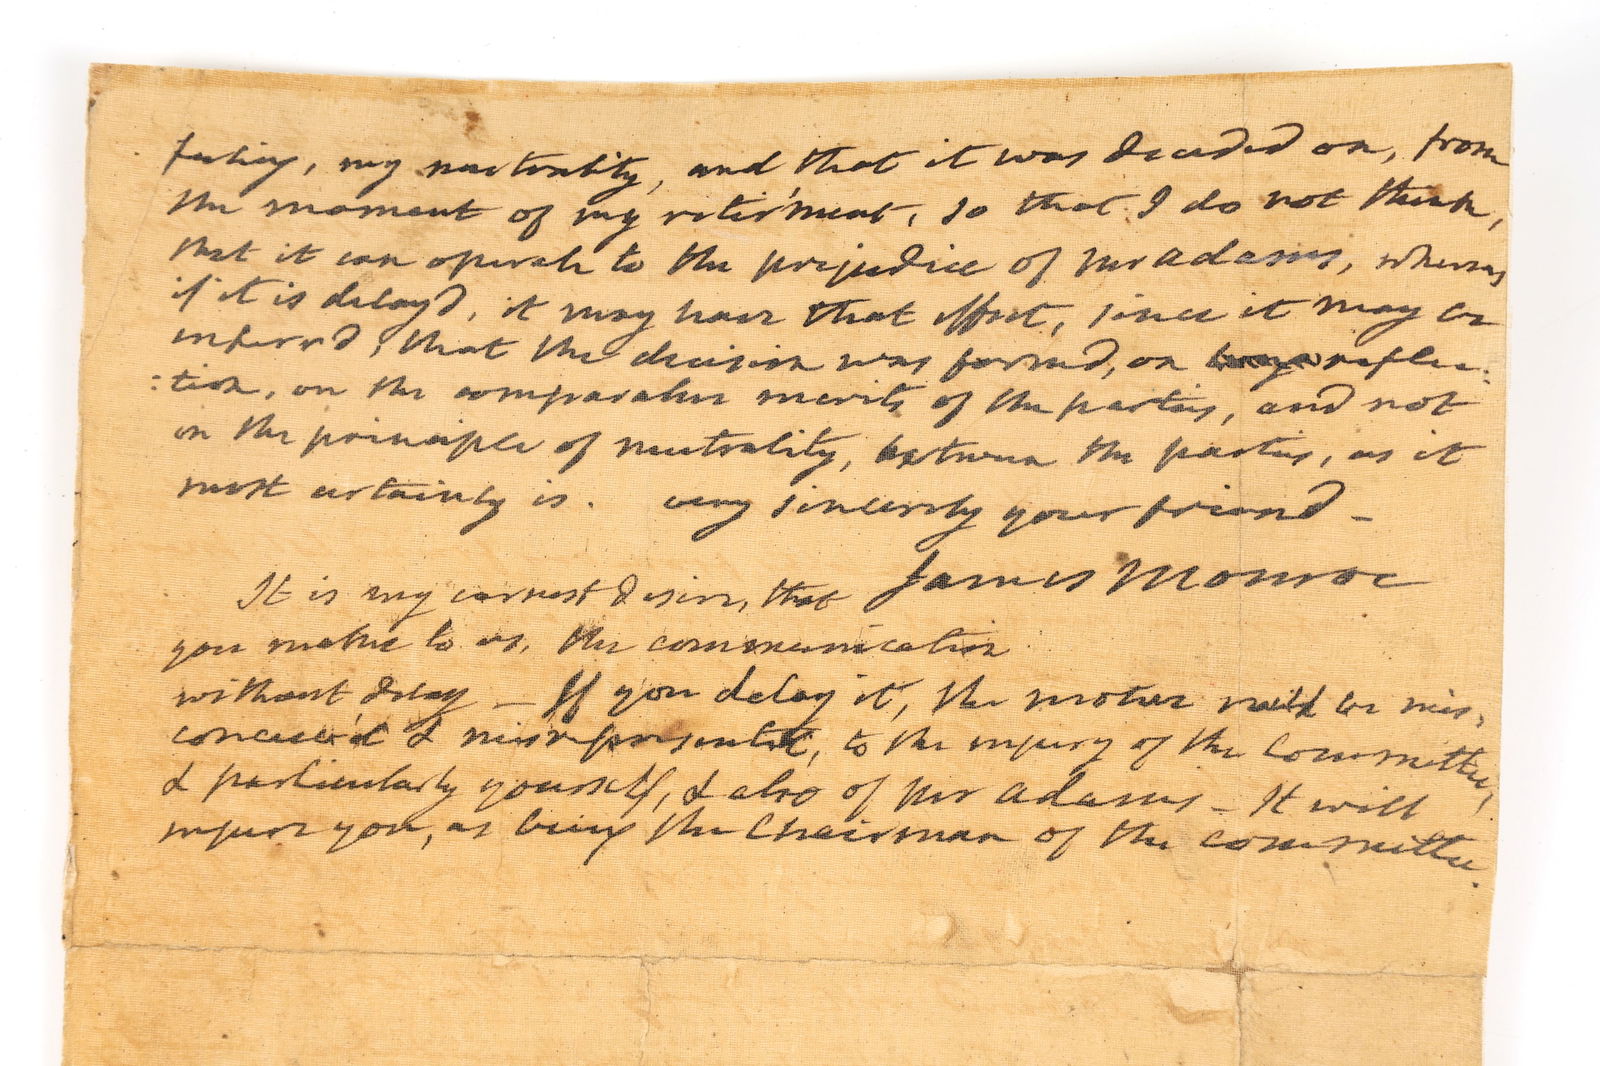 feeling, my neutrality, and that it was decided on, from
the moment of my retir'ment, so that I do not think,
that it can operate to the prejudice of Mr Adams, whereas
if it is delay'd, it may have that effect, since it may be
inferr'd, that the decision was formed, on reflec:
:tion, on the comparative merits of the parties, and not
on the principle of neutrality, between the parties, as it
most certainly is. very sincerely your friend -
James Monroe
It is my earnest desire, that
you make to us, the communication
without delay - If you delay it, the motive will be mis,
conceiv'd & misrepresented, to the injury of the Committee,
& particularly yourself, & also of Mr Adams - It will
injure you, as being the Chairman of the committee.